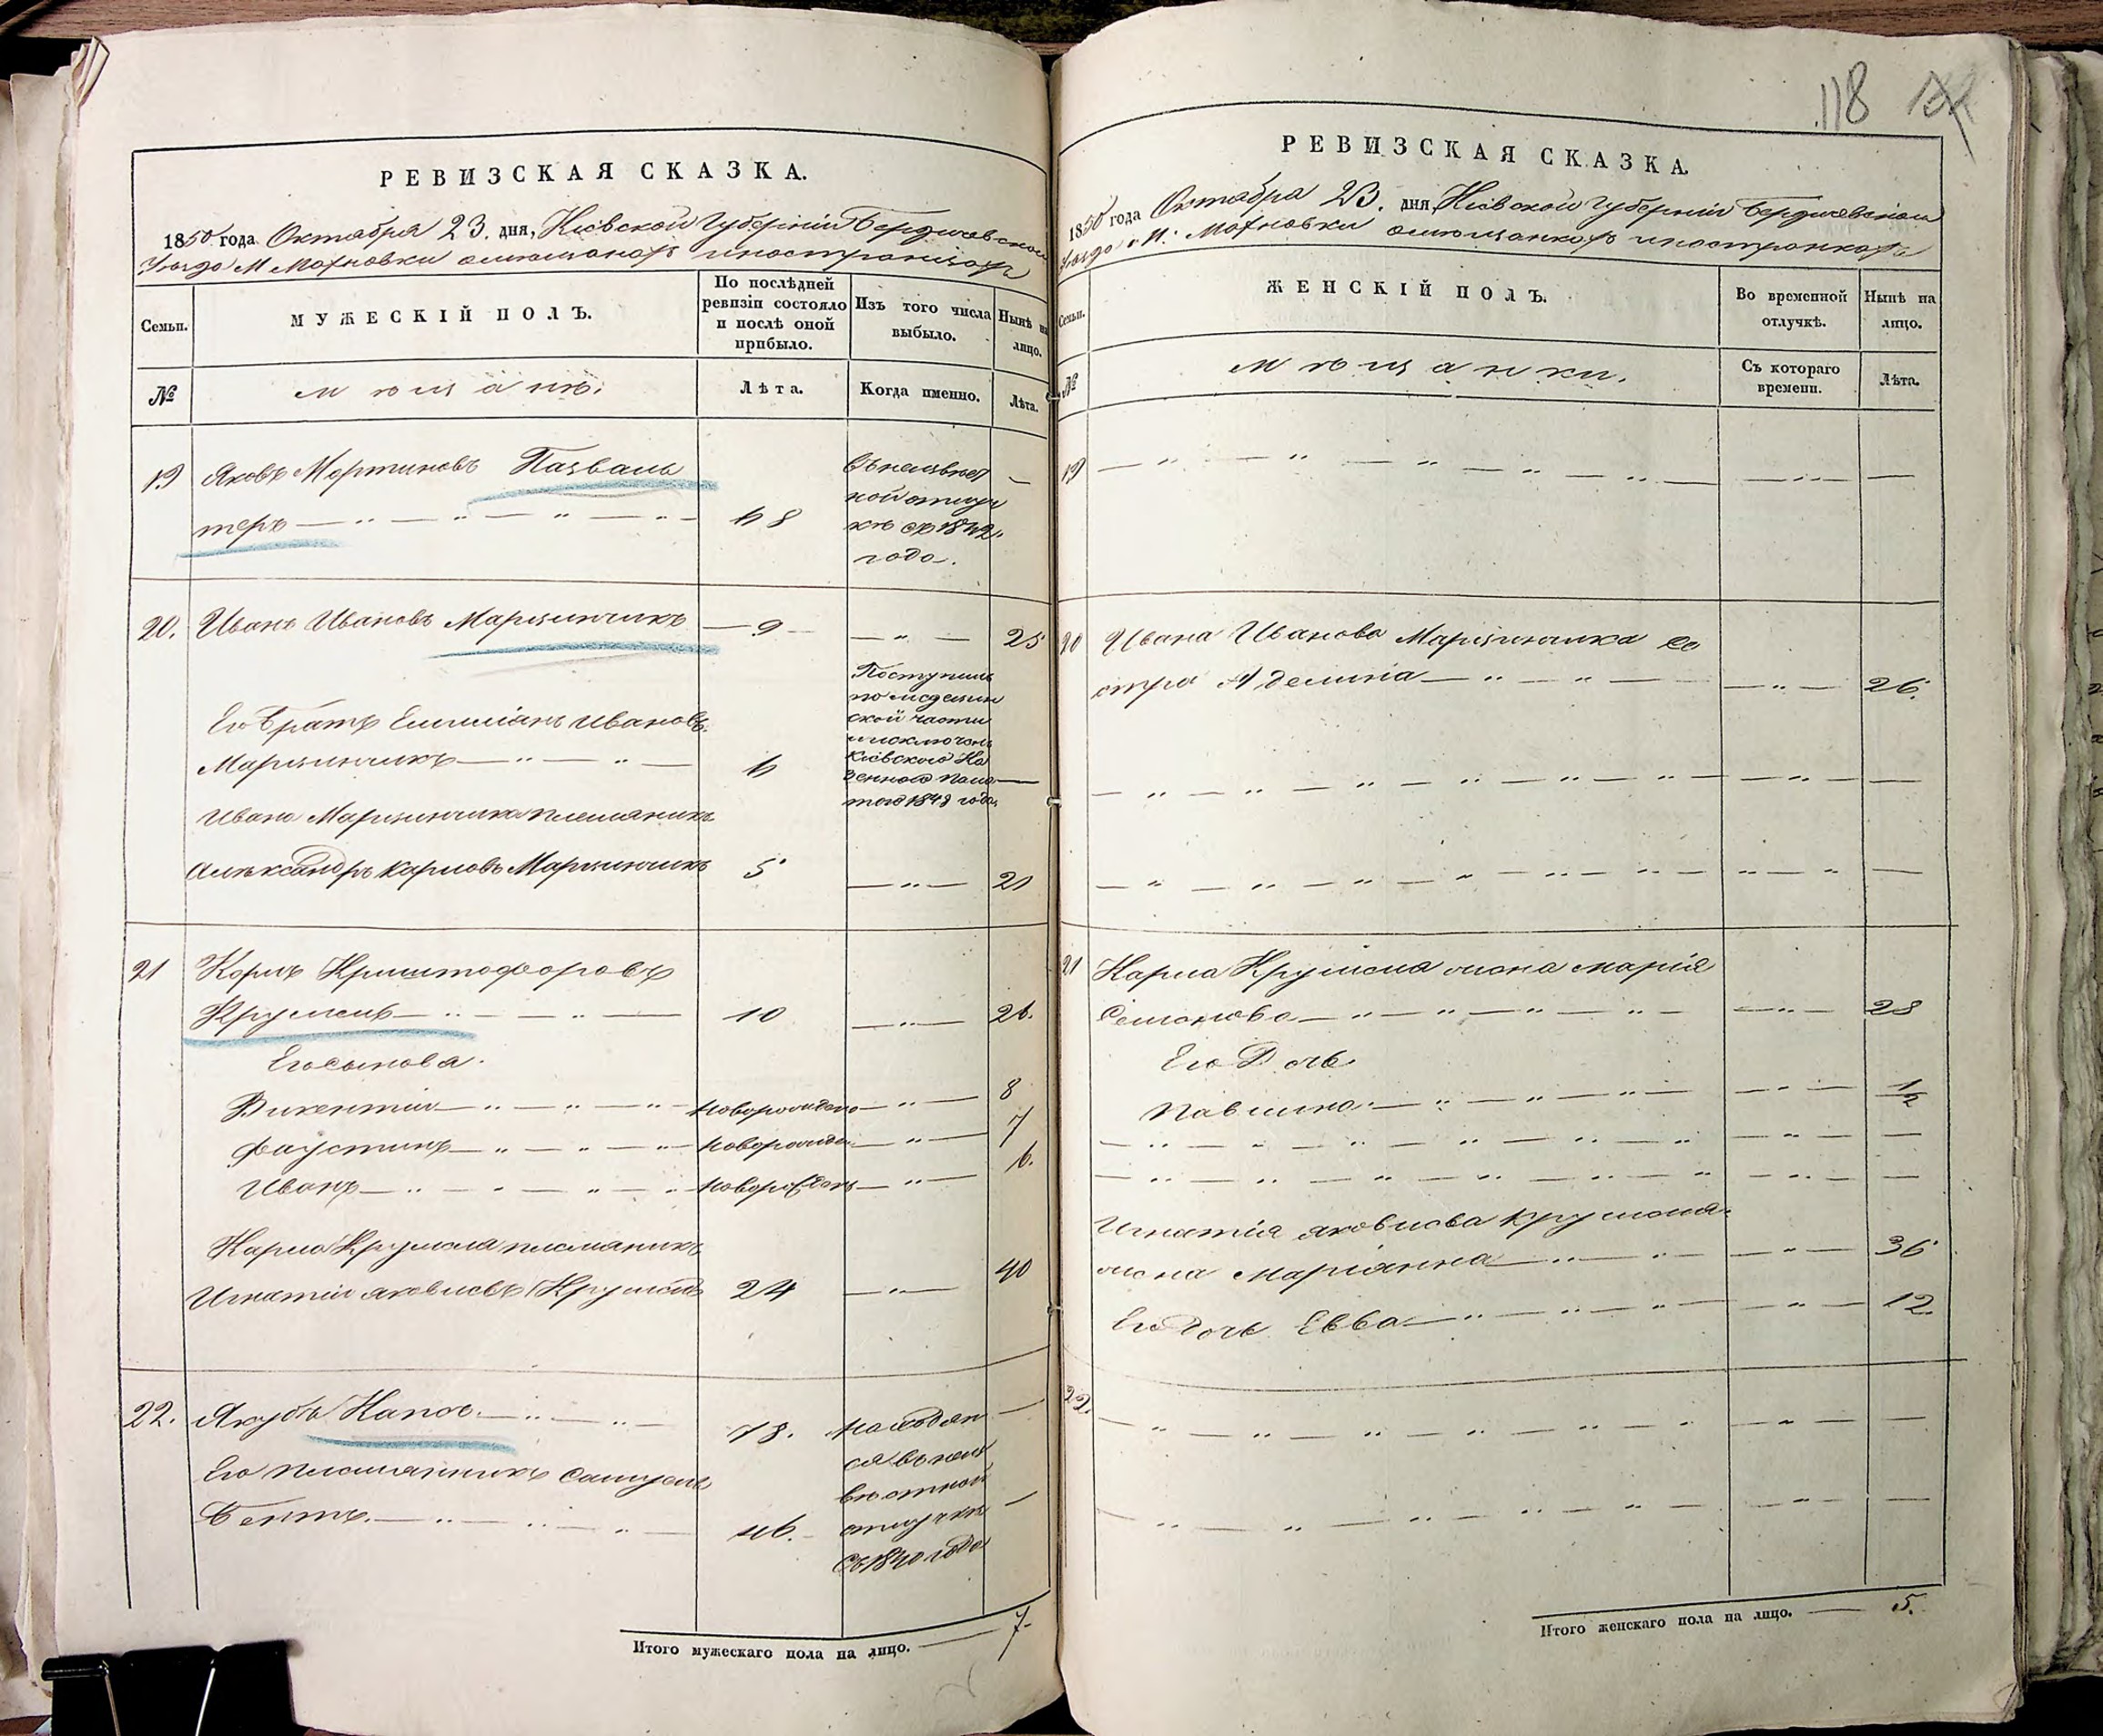 118
РЕВИЗСКАЯ СКАЗКА.
1850 года Октября 23. дня, Кіевской Губерніи Бердичевскаго
Уезда М Махновки о мещанахъ иностранцахъ
Семьи.
МУЖЕСКІЙ ПОЛЪ.
По послѣдней ревизіи состояло и послѣ оной прибыло.
Изъ того числа выбыло.
Нынѣ на лицо.
№
мѣщане.
Лѣта.
Когда именно.
Лѣта.
19 Яковъ Мартиновъ
теръ — 48
въ неизвест
ной отлуч
кѣ съ 1842
года.
20. Иванъ Ивановъ Марцинчикъ — 9 — 25
Его братъ Емилианъ Ивановъ
Марцинчикъ — 6
Поступилъ
по медицин
ской части
и исключенъ
Кіевскою Ка
зенною Пала
тою 1848 года
Ивана Марцинчика племяникъ
Александръ Карловъ Марцинчикъ 5 — 21
21 Карлъ Криштофоровъ
Крумель — 10 — 26.
Его сынова.
Викентий — новорожденъ — 8
Фаустинъ — новорожден — 7
Иванъ — новорожденъ — 6.
Карла Крумеля племяникъ
Игнатий Яковлевъ Крумель 24 — 40
22. Якубъ Капсъ — 78.
Его племянникъ Самуель
46.
находят
ся въ неиз
вестной
отлучки
съ 1840 года
Итого мужескаго пола на лицо. — 7
РЕВИЗСКАЯ СКАЗКА.
1850 года Октября 23. дня, Кіевской Губерніи Бердичевскаго
Уезда М. Махновки о мещанкахъ иностранкахъ
Семьи.
ЖЕНСКІЙ ПОЛЪ.
Во временной отлучкѣ.
Нынѣ на лицо.
№
мѣщанки.
Съ котораго времени.
Лѣта.
19
20 Ивана Иванова Марцинчика се
стра Аделина — 26.
21 Карла Крумеля жона Марія
Семонова — 28
Его Дочь
Павлина — 1/2
Игнатія Яковлева Крумеля
жона Маріянна — 36
Его Дочь Евва — 12.
22.
Итого женскаго пола на лицо. — 5.